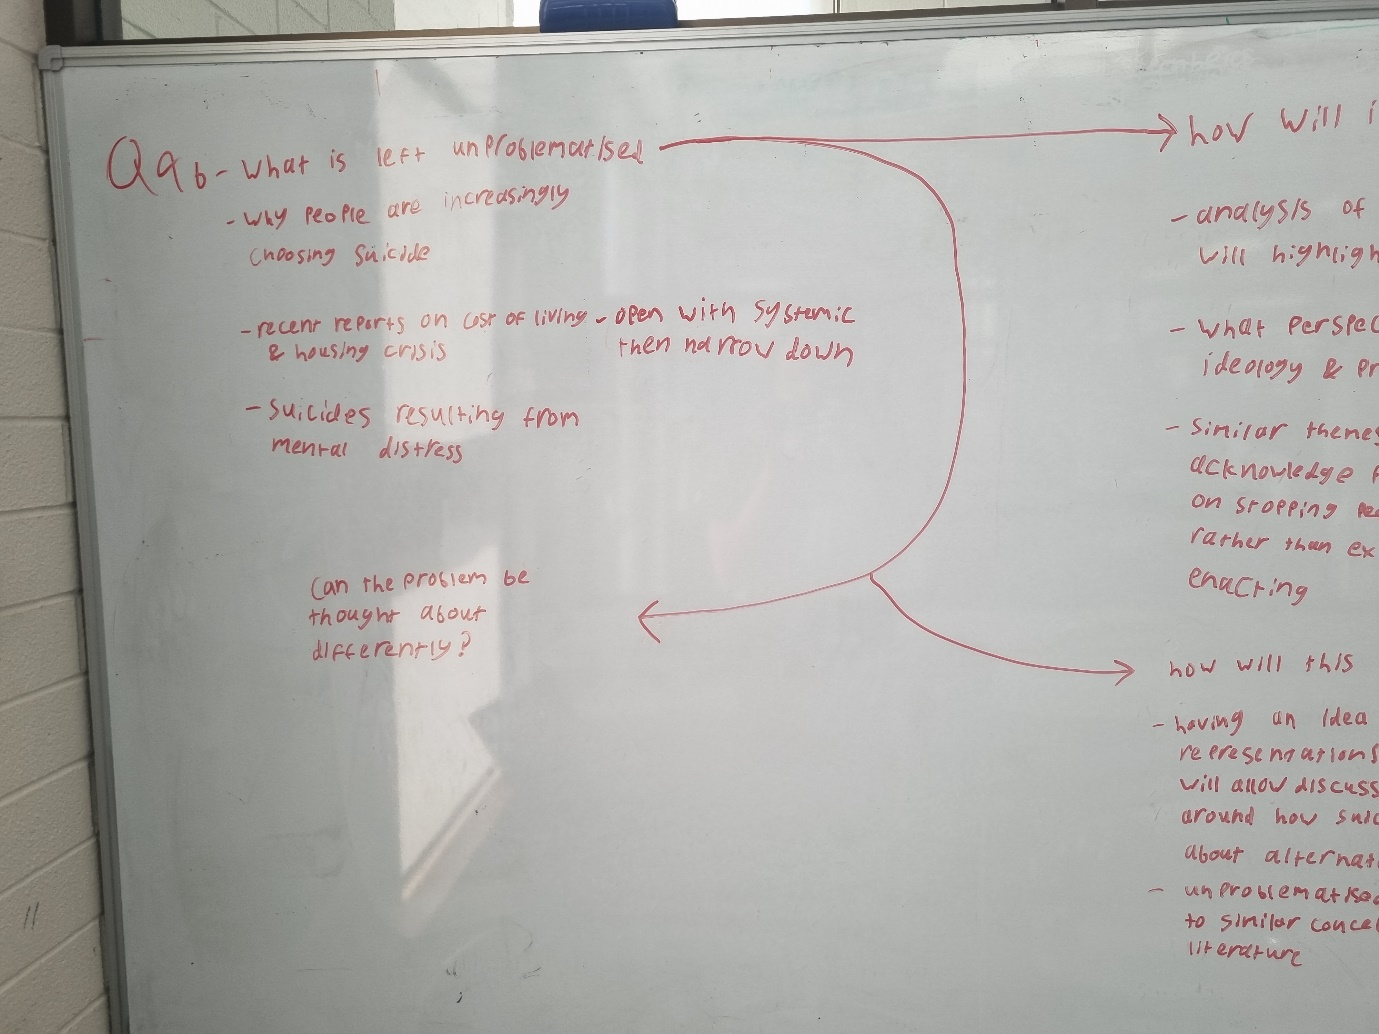 Q9b - What is left unproblematised
- Why people are increasingly
choosing suicide
- recent reports on cost of living
& housing crisis
- open with systemic
then narrow down
- suicides resulting from
mental distress
Can the problem be
thought about
differently?
how will i
- analysis of
will highligh
- what perspec
ideology & pr
- similar themes
acknowledge
on stopping pe
rather than ex
enacting
how will this
- having an idea
representations
will allow discuss
around how suic
about alternat
- unproblematised
to similar concep
literature